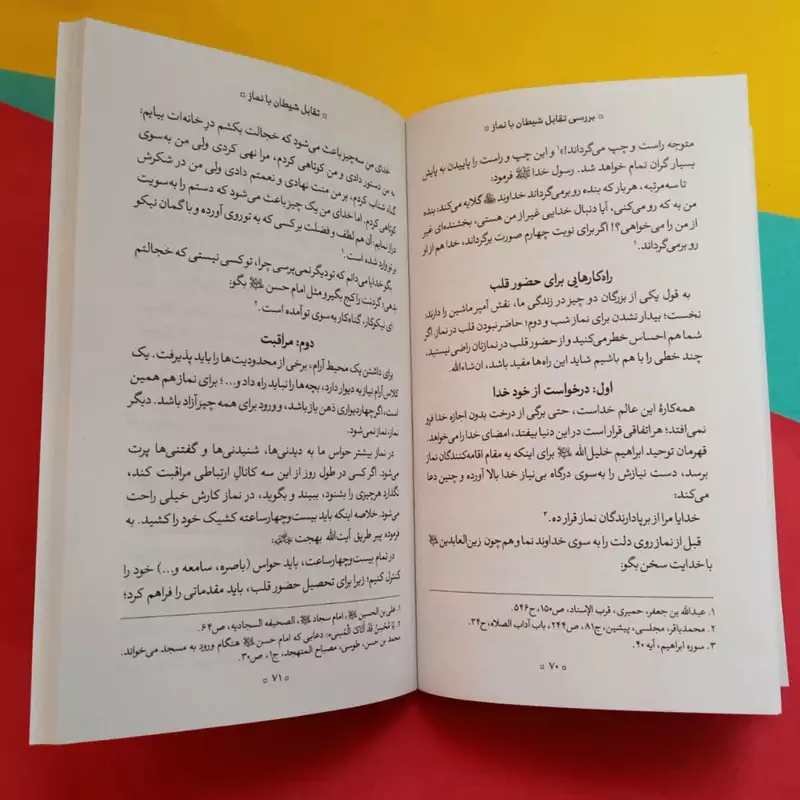 ▫ بررسی تقابل شیطان با نماز ▫
متوجه راست و چپ می‌گرداند!»۱ و این چپ و راست را پاییدن به پایش
بسیار گران تمام خواهد شد. رسول خدا ﷺ فرمود:
تا سه‌مرتبه، هربار که بنده رو برمی‌گرداند خداوند گلایه می‌کند: بنده
من به که رو می‌کنی، آیا دنبال خدایی غیر از من هستی، بخشنده‌ای غیر
از من را می‌خواهی؟! اگر برای نوبت چهارم صورت برگرداند، خدا هم از او
رو برمی‌گرداند.۲
راه‌کارهایی برای حضور قلب
به قول یکی از بزرگان دو چیز در زندگی ما، نقش آمپر ماشین را دارند،
نخست؛ بیدار نشدن برای نماز شب و دوم؛ حاضر نبودن قلب در نماز. اگر
شما هم احساس خطر می‌کنید و از حضور قلب در نمازتان راضی نیستید،
چند خطی را با هم باشیم شاید این راه‌ها مفید باشد، ان‌شاءالله.
اول: درخواست از خود خدا
همه‌کارهٔ این عالم خداست، حتی برگی از درخت بدون اجازه خدا فرو
نمی‌افتد؛ هر اتفاقی قرار است در این دنیا بیفتد، امضای خدا را می‌خواهد.
قهرمان توحید ابراهیم خلیل‌الله برای اینکه به مقام اقامه‌کنندگان نماز
برسد، دست نیازش را به‌سوی درگاه بی‌نیاز خدا بالا آورده و چنین دعا
می‌کند:
خدایا مرا از برپادارندگان نماز قرار ده.۳
قبل از نماز روی دلت را به سوی خداوند نما و هم‌چون زین‌العابدین
با خدایت سخن بگو:
۱. عبدالله بن جعفر، حمیری، قرب الإسناد، ص۱۵۰، ح۵۲۶.
۲. محمدباقر، مجلسی، پیشین، ج۸۱، ص۲۴۴، باب آداب الصلاه، ح۳۴.
۳. سوره ابراهیم، آیه ۴۰.
▫ ۷۰ ▫
▫ تقابل شیطان با نماز ▫
خدای من سه‌چیز باعث می‌شود که خجالت بکشم درِ خانه‌ات بیایم:
به من دستور دادی و من کوتاهی کردم، مرا نهی کردی ولی من به‌سوی
گناه شتاب کردم، بر من منت نهادی و نعمتم دادی ولی من در شکرش
کوتاهی کردم. اما خدای من یک چیز باعث می‌شود که دستم را به‌سویت
دراز نمایم، آن هم لطف و فضلت بر کسی که به تو روی آورده و با گمان نیکو
بر تو وارد شده است.۱
بگو خدایا می‌دانم که تو دیگر نمی‌پرسی چرا، تو کسی نیستی که خجالتم
بدهی؛ گردنت را کج بگیر و مثل امام حسن بگو:
ای نیکوکار، گناه‌کار به سوی تو آمده است.۲
دوم: مراقبت
برای داشتن یک محیط آرام، برخی از محدودیت‌ها را باید پذیرفت. یک
کلاس آرام نیاز به دیوار دارد، بچه‌ها را نباید راه داد و...؛ برای نماز هم همین
است، اگر چهاردیواری ذهن باز باشد، و ورود برای همه چیز آزاد باشد. دیگر
نماز، نماز نمی‌شود.
در نماز بیشتر حواس ما به دیدنی‌ها، شنیدنی‌ها و گفتنی‌ها پرت
می‌شود. اگر کسی در طول روز از این سه کانال ارتباطی مراقبت کند،
نگذارد هرچیزی را بشنود، ببیند و بگوید، در نماز کارش خیلی راحت
می‌شود. خلاصه اینکه باید بیست‌وچهارساعته کشیک خود را کشید. به
فرموده پیر طریق آیت‌الله بهجت:
در تمام بیست‌وچهارساعت، باید حواس (باصره، سامعه و...) خود را
کنترل کنیم؛ زیرا برای تحصیل حضور قلب، باید مقدماتی را فراهم کرد؛
۱. علی بن الحسین، امام سجاد، الصحیفه السجادیه، ص۶۴.
۲. «یَا مُحْسِنُ قَدْ أَتَاکَ الْمُسِیءُ»؛ دعایی که امام حسن هنگام ورود به مسجد می‌خواند.
محمد بن حسن، طوسی، مصباح المتهجد، ج۱، ص۳۰.
▫ ۷۱ ▫